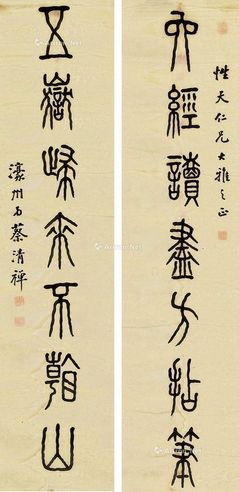 性天仁兄大雅之正
六經讀盡方拈筆
五嶽歸來不看山
濠州 蔡清禪